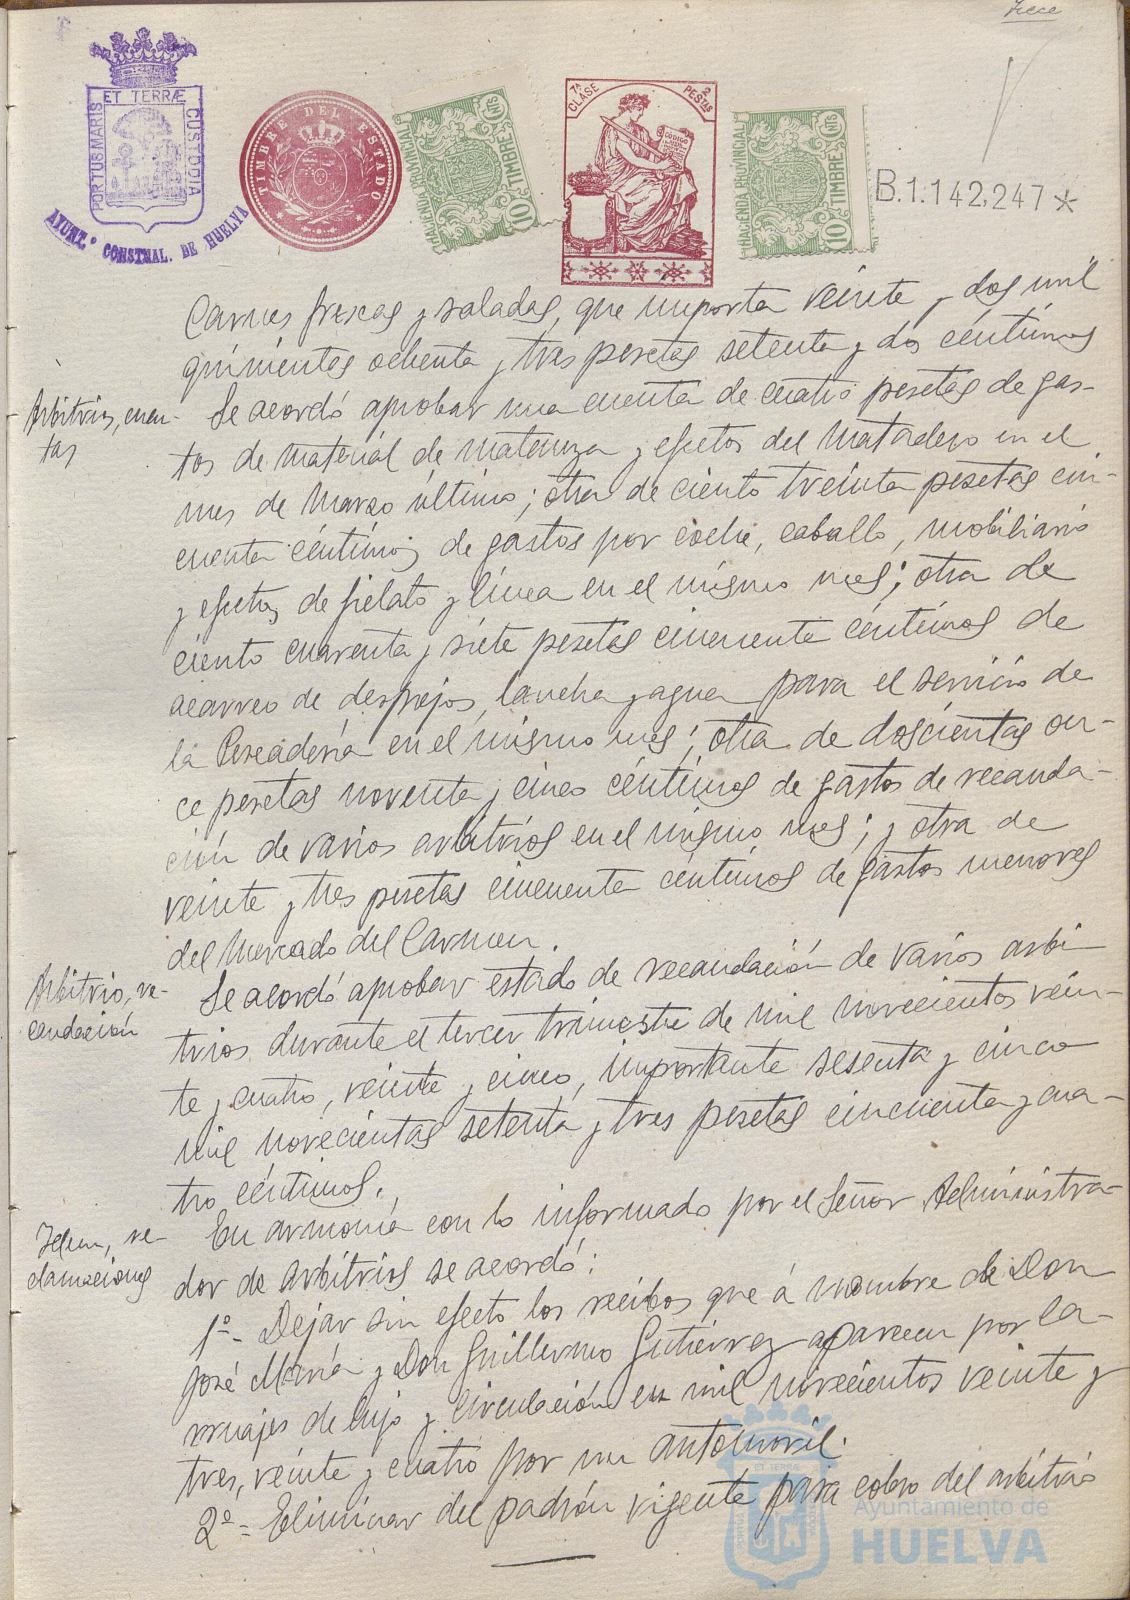 Trece
PORTUS MARIS ET TERRÆ CUSTODIA
AYUNT.º CONSTNAL. DE HUELVA
TIMBRE DEL ESTADO
HACIENDA PROVINCIAL
10 CNTS TIMBRE
7ª CLASE
2 PESTAS
CÓDIGO
HACIENDA PROVINCIAL
10 CNTS TIMBRE
B.1.142,247*
Carnes frescas y saladas, que importa veinte y dos mil
quinientas ochenta y tres pesetas setenta y dos céntimos
Arbitrios, cuen-
tas
Se acordó aprobar una cuenta de cuatro pesetas de gas-
tos de material de matanza y efectos del Matadero en el
mes de Marzo último; otra de ciento treinta pesetas cin-
cuenta céntimos de gastos por coche, caballo, mobiliario
y efectos de fielato y línea en el mismo mes; otra de
ciento cuarenta y siete pesetas cincuenta céntimos de
acarreo de despojos, lancha y agua para el servicio de
la Pescadería en el mismo mes; otra de doscientas on-
ce pesetas noventa y cinco céntimos de gastos de recauda-
ción de varios arbitrios en el mismo mes; y otra de
veinte y tres pesetas cincuenta céntimos de gastos menores
del Mercado del Carmen.
Arbitrio, re-
caudación
Se acordó aprobar estado de recaudación de varios arbi-
trios durante el tercer trimestre de mil novecientos vein-
te y cuatro, veinte y cinco, importante sesenta y cinco
mil novecientas setenta y tres pesetas cincuenta y cua-
tro céntimos.
Idem, re-
clamaciones
En armonía con lo informado por el Señor Administra-
dor de Arbitrios se acordó:
1º- Dejar sin efecto los recibos que á nombre de Don
José María y Don Guillermo Gutiérrez aparecen por ca-
rruajes de lujo y circulación en mil novecientos veinte y
tres, veinte y cuatro por un automovil.
2º= Eliminar del padrón vigente para cobro del arbitrio
Ayuntamiento de
HUELVA